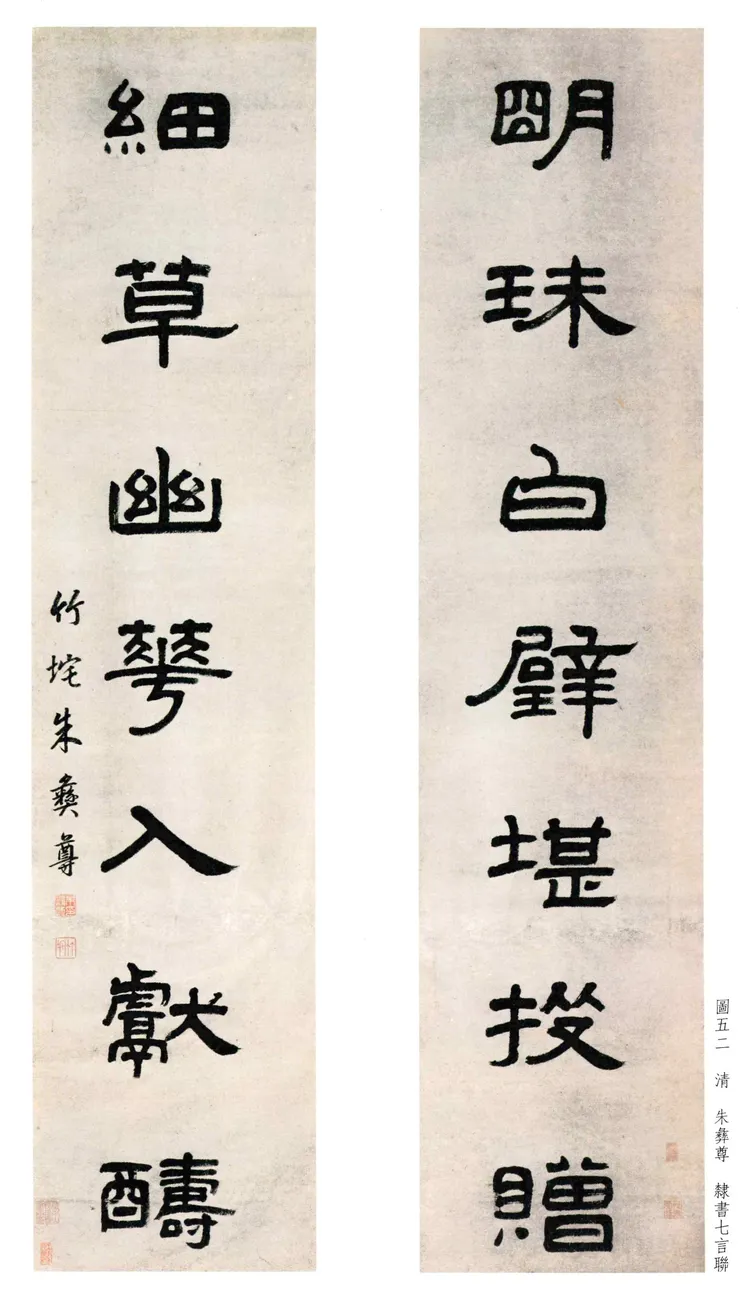 明珠白璧堪投贈
細草幽華入獻醻
竹垞朱彝尊
圖五二 清 朱彝尊 隸書七言聯